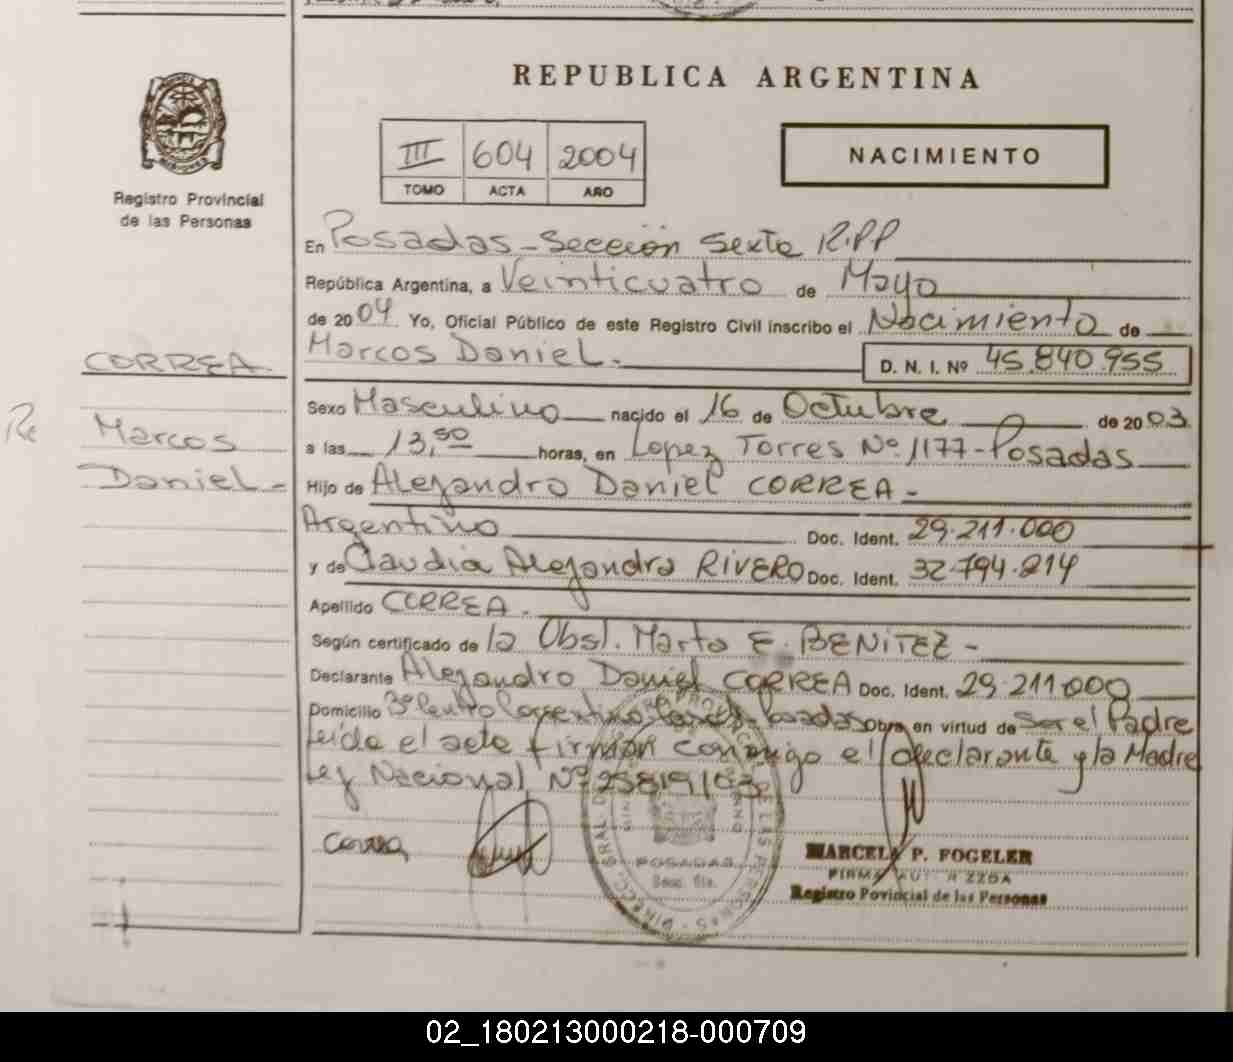 REPUBLICA ARGENTINA
III 604 2004
TOMO ACTA AÑO
NACIMIENTO
Registro Provincial
de las Personas
En Posadas - Sección Sexta R.P.P
República Argentina, a Veinticuatro de Mayo
de 2004 Yo, Oficial Público de este Registro Civil inscribo el Nacimiento de
Marcos Daniel.
D. N. I. Nº 45.840.955
CORREA
Marcos
Daniel -
Sexo Masculino nacido el 16 de Octubre de 2003
a las 13,50 horas, en Lopez Torres Nº 1177 - Posadas
Hijo de Alejandro Daniel CORREA -
Argentino Doc. Ident. 29.211.000
y de Claudia Alejandra RIVERO Doc. Ident. 32.794.214
Apellido CORREA.
Según certificado de la Obst. Marta E. BENITEZ -
Declarante Alejandro Daniel CORREA Doc. Ident. 29.211.000
Domicilio Posadas Obra en virtud de Ser el Padre
Leida el acta firman conmigo el declarante y la Madre
Ley Nacional Nº 25819/03
Correa
POSADAS
Secc. 6ta.
MARCELA P. FOGELER
FIRMA AUTORIZADA
Registro Povincial de las Personas
02_180213000218-000709